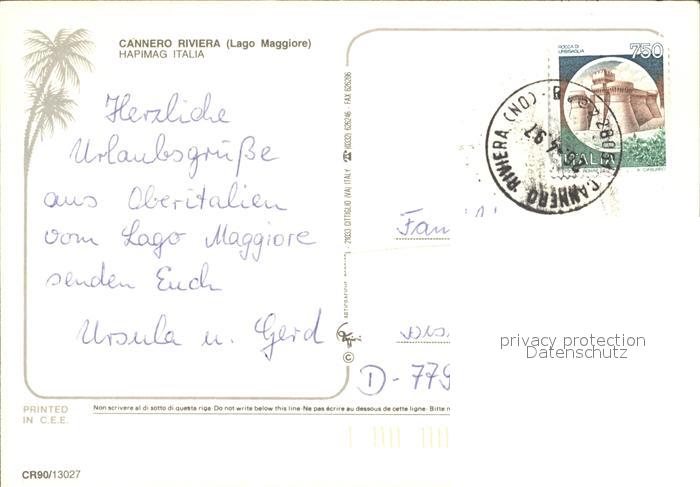 CANNERO RIVIERA (Lago Maggiore)
HAPIMAG ITALIA
Herzliche
Urlaubsgrüße
aus Oberitalien
vom Lago Maggiore
senden Euch
Ursula u. Gerd
ROCCA DI URBISAGLIA
750
ITALIA
CANNERO RIVIERA (NO)
Fam
D-779
privacy protection
Datenschutz
21033 CITTIGLIO (VA) ITALY ☎ (0332) 626246 - FAX 626286
©
PRINTED
IN C.E.E.
Non scrivere al di sotto di questa riga · Do not write below this line · Ne pas écrire au dessous de cette ligne · Bitte n
CR90/13027